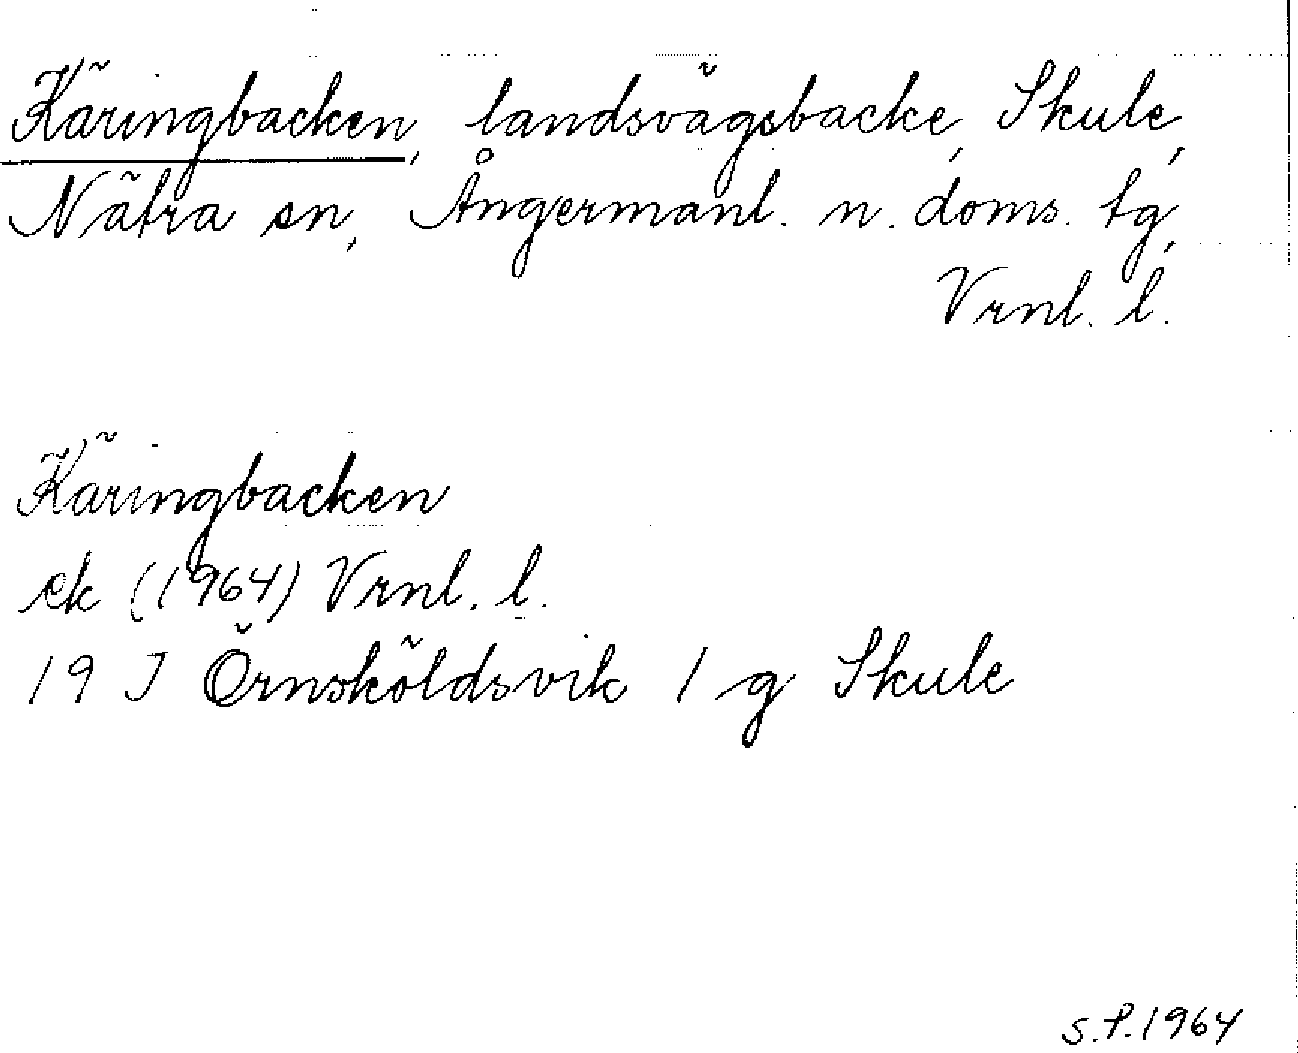 Käringbacken, landsvägsbacke, Skule,
Nätra sn, Ångermanl. n. doms. tg,
Vrnl. l.
Käringbacken
ek (1964) Vrnl. l.
19 J Örnsköldsvik 1 g Skule
S.P.1964